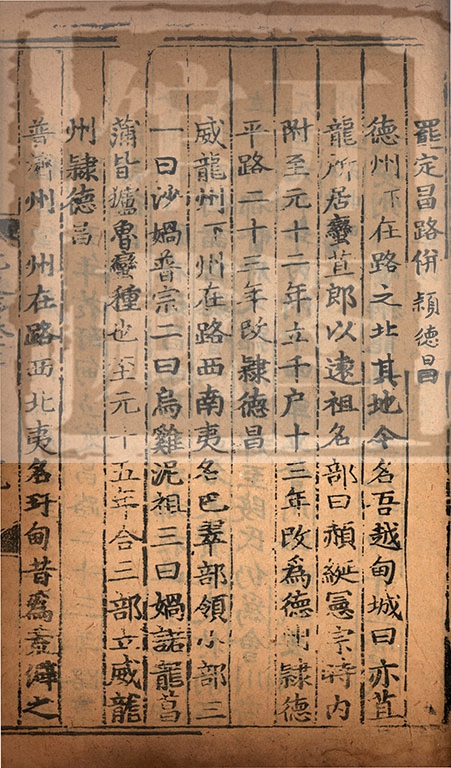 罷定昌路併頴德昌
德州下在路之北其地今名吾越甸城曰亦苴
龍所居蠻苴郎以逺祖名部曰頳綖憲宗時内
附至元十二年立千户十三年改爲德州隷德
平路二十三年改隷德昌
威龍州下州在路西南夷名巴翠部領小部三
一曰沙媧普宗二曰烏雞泥祖三曰媧諾龍菖
蒲皆獹魯蠻種也至元十五年合三部立威龍
州隷德昌
普濟州 州在路西北夷名玗甸昔爲 之